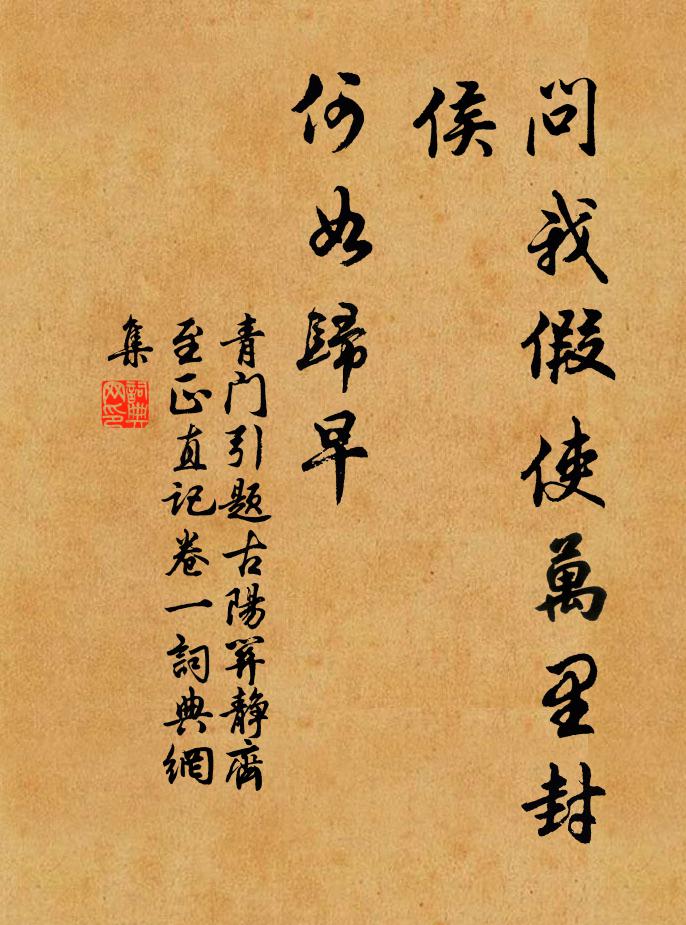 問我假使萬里封
侯
何如歸早
青门引題古陽関静齋
至正直記卷一詞典網
集
詞典網印